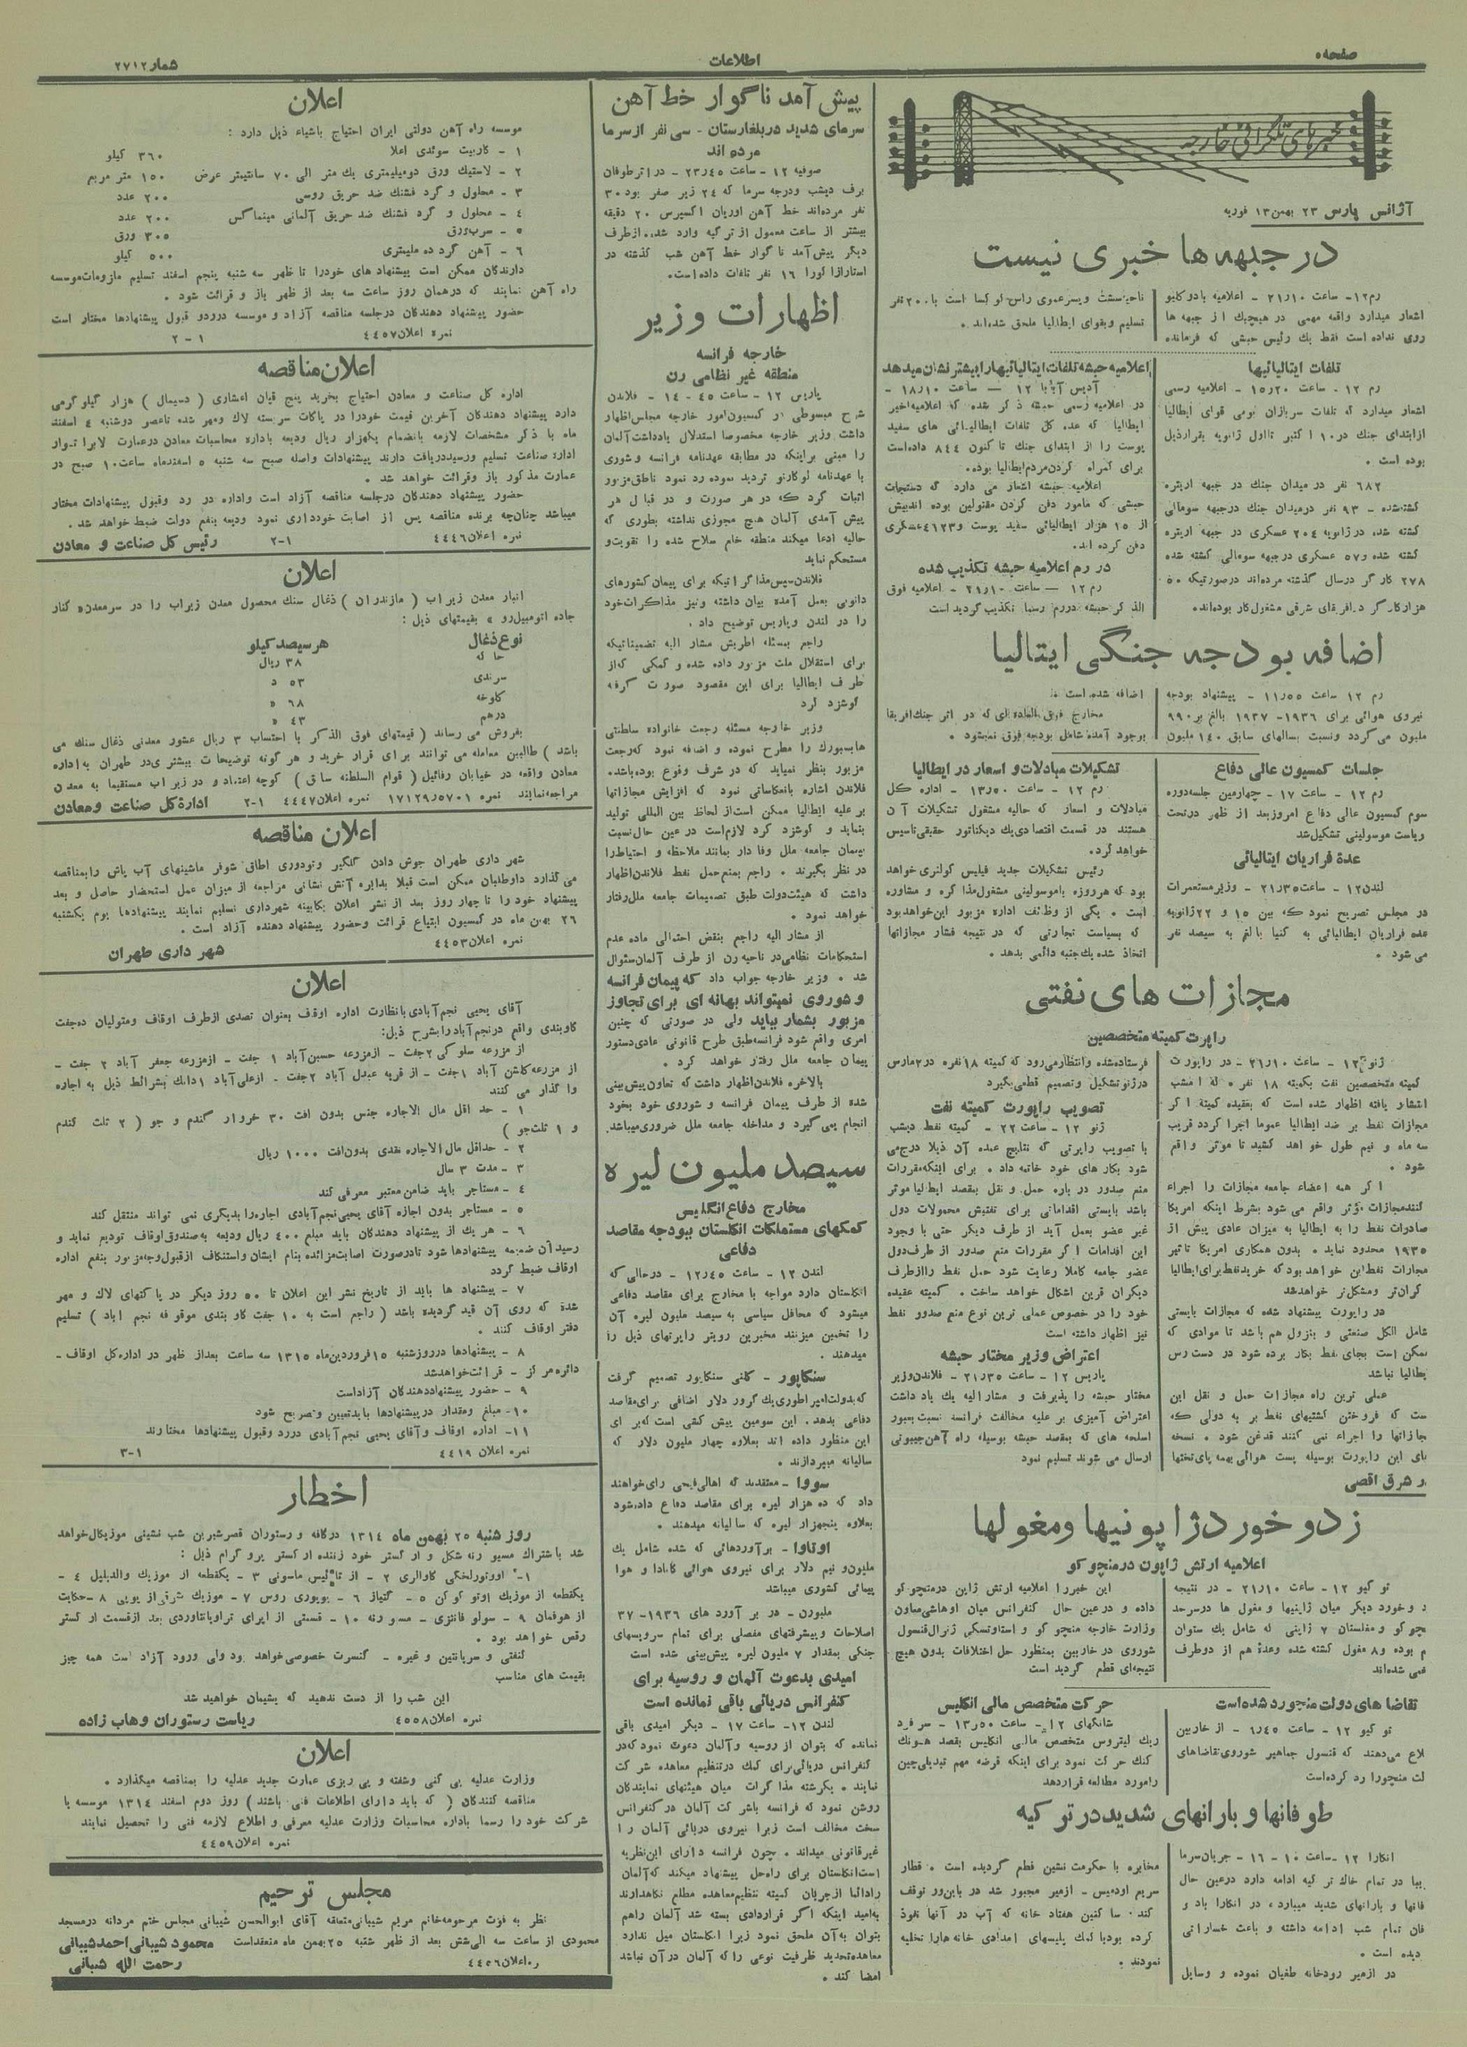 صفحه ۵
اطلاعات
شمار ۲۷۱۲
خبرهای تلگرافی خارجه
آژانس پارس ۲۳ بهمن ۱۳ فوریه
در جبهه ها خبری نیست
رم ۱۲- ساعت ۲۱ر۱۰ - اعلامیه بادوگلیو
اشعار میدارد واقعه مهمی در هیچیک از جبهه ها
روی نداده است فقط یک رئیس حبشی که فرمانده
تسلیم و بقوای ایطالیا ملحق شده‌اند.
تلفات ایتالیائیها
رم ۱۲ - ساعت ۱۵ر۲۰ - اعلامیه رسمی
اشعار میدارد که تلفات سربازان بومی قوای ایطالیا
از ابتدای جنگ در ۱۰ اکتبر تا اول ژانویه بقرار ذیل
بوده است .
۶۸۲ نفر در میدان جنگ در جبهه اریتره
کشته شده - ۹۳ نفر در میدان جنگ در جبهه سومالی
کشته شده در ژانویه ۲۰۴ عسکری در جبهه اریتره
کشته شده و ۵۷ عسکری در جبهه سومالی کشته شده
۲۷۸ کارگر در سال گذشته مرده‌اند در صورتیکه ۵۰
هزار کارگر در افریقای شرقی مشغول کار بوده‌اند
اعلامیه حبشه تلفات ایتالیائیها را بیشتر نشان میدهد
آدیس آبابا ۱۲ — ساعت ۱۸ر۱۰ -
در اعلامیه رسمی حبشه ذکر شده که اعلامیه اخیر
ایطالیا که عده کل تلفات ایطالیائی های سفید
پوست را از ابتدای جنگ تا کنون ۸۴۴ داده است
برای گمراه کردن مردم ایطالیا بوده.
اعلامیه حبشه اشعار می دارد که دستجات
حبشی که مامور دفن کردن مقتولین بوده اند بیش
از ۱۵ هزار ایطالیائی سفید پوست و ۴۱۲۳ عسکری
دفن کرده اند.
در رم اعلامیه حبشه تکذیب شده
رم ۱۲ — ساعت ۲۱ر۱۰ - اعلامیه فوق
الذکر حبشه در رم رسما تکذیب گردید است
اضافه بودجه جنگی ایتالیا
رم ۱۲ ساعت ۱۱ر۵۵ - پیشنهاد بودجه
نیروی هوائی برای ۱۹۳۶- ۱۹۳۷ بالغ بر ۹۹۰
ملیون می گردد و نسبت بسالهای سابق ۱۴۰ ملیون
اضافه شده است .
مخارج فوق العاده‌ای که در اثر جنگ افریقا
بوجود آمده شامل بودجه فوق نمیشود .
جلسات کمسیون عالی دفاع
رم ۱۲ - ساعت ۱۷ - چهارمین جلسه دوره
سوم کمسیون عالی دفاع امروز بعد از ظهر در تحت
ریاست موسولینی تشکیل شد
عدة فراریان ایتالیائی
لندن ۱۲ - ساعت ۲۱ر۳۵ - وزیر مستعمرات
در مجلس تصریح نمود که بین ۱۵ و ۲۲ ژانویه
عده فراریان ایطالیائی به کنیا بالغ به سیصد نفر
می شود .
تشکیلات مبادلات و اسعار در ایطالیا
رم ۱۲ - ساعت ۱۳ر۵۰ - اداره کل
مبادلات و اسعار که حالیه مشغول تشکیلات آن
هستند در قسمت اقتصادی یک دیکتاتور حقیقی تاسیس
خواهد کرد.
رئیس تشکیلات جدید فیلیس گولنری خواهد
بود که هر روزه با موسولینی مشغول مذاکره و مشاوره
است . یکی از وظائف اداره مزبور این خواهد بود
که بسیاست تجارتی که در نتیجه فشار مجازاتها
اتخاذ شده یک جنبه دائمی بدهد .
مجازات های نفتی
راپرت کمیته متخصصین
ژنو ۱۲ - ساعت ۲۱ر۱۰ - در راپورت
انتشار یافته اظهار شده است که بعقیده کمیته اگر
مجازات نفط بر ضد ایطالیا عموما اجرا گردد قریب
سه ماه و نیم طول خواهد کشید تا موثر واقع
شود .
اگر همه اعضاء جامعه مجازات را اجراء
کنند مجازات مؤثر واقع می شود بشرط اینکه امریکا
صادرات نفط را به ایطالیا به میزان عادی پیش از
۱۹۳۵ محدود نماید . بدون همکاری امریکا تاثیر
مجازات نفط این خواهد بود که خرید نفط برای ایطالیا
گران‌تر و مشکل‌تر خواهد شد
در راپورت پیشنهاد شده که مجازات بایستی
شامل الکل صنعتی و بنزول هم باشد تا موادی که
ممکن است بجای نفط بکار برده شود در دست رس
ایطالیا نباشد
عملی ترین راه مجازات حمل و نقل این
ست که فروختن کشتیهای نفط بر به دولی که
مجازاتها را اجراء نمی کنند قدغن شود . نسخه
های این راپورت بوسیله پست هوائی بهمه پای تختها
و شرق اقصی
فرستاده شده و انتظار میرود که کمیته ۱۸ نفره در ۲ مارس
در ژنو تشکیل و تصمیم قطعی بگیرد
تصویب راپورت کمیته نفت
ژنو ۱۲ - ساعت ۲۲ - کمیته نفط دیشب
با تصویب راپرتی که نتایج عمده آن ذیلا درج می
شود بکار های خود خاتمه داد . برای اینکه مقررات
منع صدور در باره حمل و نقل بمقصد ایطالیا موثر
باشد بایستی اقداماتی برای تفتیش محمولات دول
غیر عضو بعمل آید از طرف دیگر حتی با وجود
این اقدامات اگر مقررات منع صدور از طرف دول
عضو جامعه کاملا رعایت شود حمل نفط را از طرف
دیگران قرین اشکال خواهد ساخت . کمیته عقیده
خود را در خصوص عملی ترین نوع منع صدور نفط
نیز اظهار داشته است
اعتراض وزیر مختار حبشه
پاریس ۱۲ - ساعت ۲۱ر۳۵ - فلاندن وزیر
مختار حبشه را پذیرفت و مشار الیه یک یاد داشت
اعتراض آمیزی بر علیه مخالفت فرانسه نسبت بعبور
اسلحه های که بمقصد حبشه بوسیله راه آهن جیبوتی
ارسال می شوند تسلیم نمود
زد و خورد ژاپونیها و مغولها
اعلامیه ارتش ژاپون در منچوکو
توکیو ۱۲ - ساعت ۲۱ر۱۰ - در نتیجه
و خورد دیگر میان ژاپنیها و مغول ها در سرحد
چوکو و مغلستان ۷ ژاپنی که شامل یک ستوان
م بوده و ۸ مغول کشته شده وعدۀ هم از دو طرف
می شده‌اند
این خبر را اعلامیه ارتش ژاپن در منچوکو
داده و در عین حال کنفرانس میان اوهاشی معاون
وزارت خارجه منچوکو و اسلاوتسکی ژنرال قنسول
شوروی در خاربین بمنظور حل اختلافات بدون هیچ
نتیجه‌ای قطع گردید است
تقاضا های دولت منچور رد شده است
توکیو ۱۲ - ساعت ۶ر۴۵ - از خاربین
لاع می‌دهند که قنسول جماهیر شوروی تقاضاهای
لت منچورا رد کرده است
حرکت متخصص مالی انگلیس
شانگهای ۱۲ - ساعت ۱۳ر۵۰ - سر فرد
ریک لیتروس متخصص مالی انگلیس بقصد هونگ
کنک حرکت نمود برای اینکه قرضه مهم تبدیلی چین
را مورد مطالعه قرار دهد
طوفانها و بارانهای شدید در ترکیه
انکارا ۱۲ - ساعت ۱۰ - ۱۶ - جریان سرما
بیا در تمام خاک ترکیه ادامه دارد در عین حال
فانها و بارانهای شدید میبارد ، در انکارا باد و
فان تمام شب ادامه داشته و باعث خساراتی
دیده است .
در ازمیر رودخانه طغیان نموده و وسایل
مخابره با حکومت نشین قطع گردیده است . قطار
کند . ساکنین هفتاد خانه که آب در آنها نفوذ
کرده بود با کمک پلیسهای امدادی خانه ها را تخلیه
نمودند .
پیش آمد ناگوار خط آهن
سرمای شدید در بلغارستان - سی نفر از سرما
مرده اند
صوفیه ۱۲ - ساعت ۲۳ر۴۵ - در اثر طوفان
برف دیشب و درجه سرما که ۲۴ زیر صفر بود ۳۰
نفر مرده‌اند خط آهن اوریان اکسپرس ۲۰ دقیقه
بیشتر از ساعت معمول از ترکیه وارد شد. از طرف
دیگر پیش آمد ناگوار خط آهن شب گذشته در
استارازاگورا ۱۶ نفر تلفات داده است.
اظهارات وزیر
خارجه فرانسه
منطقه غیر نظامی رن
پاریس ۱۲ - ساعت ۴۵ - ۱۴ - فلاندن
شرح مبسوطی در کمسیون امور خارجه مجلس اظهار
داشت وزیر خارجه مخصوصا استدلال یادداشت آلمان
را مبنی بر اینکه در مطابقه عهدنامه فرانسه و شوری
با عهدنامه لوکارنو تردید نموده رد نمود ناطق مزبور
اثبات کرد که در هر صورت و در قبال هر
پیش آمدی آلمان هیچ مجوزی نداشته بطوری که
حالیه ادعا میکند منطقه خلع سلاح شده را تقویت و
مستحکم نماید
فلاندن سپس مذاکراتیکه برای پیمان کشورهای
دانوبی بعمل آمده بیان داشته و نیز مذاکرات خود
را در لندن و پاریس توضیح داد .
راجع بمسئله اطریش مشار الیه تضمیناتیکه
برای استقلال ملت مزبور داده شده و کمکی که از
طرف ایطالیا برای این مقصود صورت گرفته
گوشزد کرد
وزیر خارجه مسئله رجعت خانواده سلطنتی
هابسبورک را مطرح نموده و اضافه نمود که رجعت
مزبور بنظر نمیاید که در شرف وقوع بوده باشد.
فلاندن اشاره بانعکاساتی نمود که افزایش مجازاتها
بر علیه ایطالیا ممکن است از لحاظ بین المللی تولید
بنماید و گوشزد کرد لازم است در عین حال نسبت
بپیمان جامعه ملل وفا دار بمانند ملاحظه و احتیاط را
در نظر بگیرند . راجع بمنع حمل نفط فلاندن اظهار
داشت که هیئت دولت طبق تصمیمات جامعه ملل رفتار
خواهد نمود .
از مشار الیه راجع بنقض احتمالی ماده عدم
استحکامات نظامی در ناحیه رن از طرف آلمان سئوال
شد . وزیر خارجه جواب داد که پیمان فرانسه
و شوروی نمیتواند بهانه ای برای تجاوز
مزبور بشمار بیاید ولی در صورتی که چنین
امری واقع شود فرانسه طبق طرح قانونی عادی دستور
پیمان جامعه ملل رفتار خواهد کرد .
بالاخره فلاندن اظهار داشت که تعاون پیش بینی
شده از طرف پیمان فرانسه و شوروی خود بخود
انجام نمی گیرد و مداخله جامعه ملل ضروری میباشد.
سیصد ملیون لیره
مخارج دفاع انگلیس
کمکهای مستملکات انگلستان ببودجه مقاصد
دفاعی
لندن ۱۲ - ساعت ۱۲ر۴۵ - در حالی که
انگلستان دارد مواجه با مخارج برای مقاصد دفاعی
میشود که محافل سیاسی به سیصد ملیون لیره آن
را تخمین میزنند مخبرین رویتر راپرتهای ذیل را
میدهند .
سنگاپور - کلنی سنگاپور تصمیم گرفت
که بدولت امپراطوری یک کرور دلار اضافی برای مقاصد
دفاعی بدهد. این سومین پیش کشی است که برای
این منظور داده اند بعلاوه چهار ملیون دلار که
سالیانه میپردازند .
سووا - معتقدند که اهالی فیجی رای خواهند
داد که ده هزار لیره برای مقاصد دفاع داده شود
بعلاوه پنجهزار لیره که سالیانه میدهند .
اوتاوا - برآوردهائی که شده شامل یک
ملیون و نیم دلار برای نیروی هوائی کانادا و هوا
پیمائی کشوری میباشد
ملبورن - در بر آورد های ۱۹۳۶- ۳۷
اصلاحات و پیشرفتهای مفصلی برای تمام سرویسهای
جنگی بمقدار ۷ ملیون لیره پیش‌بینی شده است
امیدی بدعوت آلمان و روسیه برای
کنفرانس دریائی باقی نمانده است
لندن ۱۲- ساعت ۱۷ - دیگر امیدی باقی
نمانده که بتوان از روسیه و آلمان دعوت نمود که در
کنفرانس دریائی برای کمک در تنظیم معاهده شرکت
نمایند . یکرشته مذاکرات میان هیئتهای نمایندگان
روشن نمود که فرانسه با شرکت آلمان در کنفرانس
سخت مخالف است زیرا نیروی دریائی آلمان را
غیر قانونی میداند . چون فرانسه دارای این نظریه
است انگلستان برای راه حل پیشنهاد میکند که آلمان
را دائما از جریان کمیته تنظیم معاهده مطلع نگاهدارند
به امید اینکه اگر قراردادی بسته شد آلمان را هم
بتوان به آن ملحق نمود زیرا انگلستان میل ندارد
معاهده تحدید ظرفیت نوعی را که آلمان در آن نباشد
امضا کند .
اعلان
موسسه راه آهن دولتی ایران احتیاج باشیاء ذیل دارد :
۱ - کاربیت سوئدی اعلا ۳۶۰ کیلو
۲ - لاستیک ورق دو میلیمتری یک متر الی ۷۰ سانتیمتر عرض ۱۵۰ متر مربع
۳ - محلول و گرد فشنگ ضد حریق روسی ۲۰۰ عدد
۴ - محلول و گرد فشنگ ضد حریق آلمانی مینماکس ۲۰۰ عدد
۵ - سرب ورق ۳۰۵ ورق
۶ - آهن گرد ده ملیمتری ۵۰۰ کیلو
دارندگان ممکن است پیشنهاد های خود را تا ظهر سه شنبه پنجم اسفند تسلیم ملزومات موسسه
راه آهن نمایند که در همان روز ساعت سه بعد از ظهر باز و قرائت شود .
حضور پیشنهاد دهندگان در جلسه مناقصه آزاد و موسسه در رد و قبول پیشنهادها مختار است
نمره اعلان ۴۴۵۷ ۱ - ۲
اعلان مناقصه
اداره کل صناعت و معادن احتیاج بخرید پنج قپان اعشاری ( دسیمال ) هزار کیلو گرمی
دارد پیشنهاد دهندگان آخرین قیمت خود را در پاکات سر بسته لاک و مهر شده تا عصر دوشنبه ۴ اسفند
ماه با ذکر مشخصات لازمه بانضمام یکهزار ریال ودیعه باداره محاسبات معادن در عمارت لابراتوار
اداره صناعت تسلیم و رسید دریافت دارند پیشنهادات واصله صبح سه شنبه ۵ اسفند ماه ساعت ۱۰ صبح در
عمارت مذکور باز و قرائت خواهد شد .
حضور پیشنهاد دهندگان در جلسه مناقصه آزاد است و اداره در رد و قبول پیشنهاد مختار
میباشد چنانچه برنده مناقصه پس از اصابت خودداری نمود ودیعه بنفع دولت ضبط خواهد شد .
نمره اعلان ۴۴۴۶ ۱-۲ رئیس کل صناعت و معادن
اعلان
انبار معدن زیراب ( مازندران ) ذغال سنگ محصول معدن زیراب را در سر معدن و کنار
جاده اتومبیل رو ، بقیمتهای ذیل :
نوع ذغال هر سیصد کیلو
خاکه ۳۸ ریال
سرندی ۵۳ د
کلوخه ۶۸ ه
درهم ۴۳ ه
بفروش می رساند ( قیمتهای فوق الذکر با احتساب ۳ ریال عشور معدنی ذغال سنگ می
باشد ) طالبین معامله می توانند برای قرار خرید و هر گونه توضیحات بیشتری در طهران به اداره
معادن واقعه در خیابان رفائیل ( قوام السلطنه سابق ) کوچه اعتماد و در زیراب مستقیما به معدن
مراجعه نمایند نمره ۱۷۱۲۹ر۵۷۰۱ نمره اعلان ۴۴۴۷ ۱-۲ اداره کل صناعت و معادن
اعلان مناقصه
شهر داری طهران جوش دادن گلگیر و تودوزی اطاق شوفر ماشینهای آب پاش را بمناقصه
می گذارد داوطلبان ممکن است قبلا بدایره آتش نشانی مراجعه از میزان عمل استحضار حاصل و بعد
پیشنهاد خود را تا چهار روز بعد از نشر اعلان بکابینه شهرداری تسلیم نمایند پیشنهادها یوم یکشنبه
۲۶ بهمن ماه در کمیسیون ابتیاع قرائت و حضور پیشنهاد دهنده آزاد است .
نمره اعلان ۴۴۵۳ شهر داری طهران
اعلان
آقای یحیی نجم آبادی با نظارت اداره اوقاف بعنوان تصدی از طرف اوقاف و متولیان ده جفت
گاوبندی واقع در نجم آباد را بشرح ذیل:
از مزرعه سلوکی ۲ جفت - از مزرعه حسین آباد ۱ جفت - از مزرعه جعفر آباد ۲ جفت -
از مزرعه کاشن آباد ۱ جفت - از قریه عبدل آباد ۲ جفت - از علی آباد ۱ دانگ بشرائط ذیل به اجاره
وا گذار می کنند
۱ - حد اقل مال الاجاره جنس بدون آفت ۳۰ خروار گندم و جو ( ۲ ثلث گندم
و ۱ ثلث جو )
۲ - حداقل مال الاجاره نقدی بدون آفت ۱۰۰۰ ریال
۳ - مدت ۳ سال
۴ - مستاجر باید ضامن معتبر معرفی کند
۵ - مستاجر بدون اجازه آقای یحیی نجم آبادی اجاره را بدیگری نمی تواند منتقل کند
۶ - هر یک از پیشنهاد دهندگان باید مبلغ ۴۰۰ ریال ودیعه به صندوق اوقاف تودیع نماید و
رسید آن ضمیمه پیشنهادها شود تا در صورت اصابت مزائده بنام ایشان و استنکاف از قبول وجه مزبور بنفع اداره
اوقاف ضبط گردد
۷ - پیشنهاد ها باید از تاریخ نشر این اعلان تا ۵۰ روز دیگر در پاکتهای لاک و مهر
شده که روی آن قید گردیده باشد ( راجع است به ۱۰ جفت گاو بندی موقوفه نجم آباد ) تسلیم
دفتر اوقاف کنند .
۸ - پیشنهادها در روز شنبه ۱۵ فروردین ماه ۱۳۱۵ سه ساعت بعد از ظهر در اداره کل اوقاف -
دائره مرکز - قرائت خواهد شد
۹ - حضور پیشنهاد دهندگان آزاد است
۱۰- مبلغ و مقدار در پیشنهادها باید تعیین و تصریح شود
۱۱- اداره اوقاف و آقای یحیی نجم آبادی در رد و قبول پیشنهادها مختارند
نمره اعلان ۴۴۱۹ ۱-۳
اخطار
روز شنبه ۲۵ بهمن ماه ۱۳۱۴ در کافه و رستوران قصر شیرین شب نشینی موزیکال خواهد
شد با شتراک مسیو رنه شکل و ارکستر خود زننده ارکستر پروگرام ذیل :
یکقطعه از موزیک اوتو کوکن ۵ - گتیاز ۶ - بوبوری روس ۷ - موزیک شرقی از پوپی ۸ - حکایت
از هوفمان ۹ - سولو فانتزی - مسیو رنه ۱۰ - قسمتی از اپرای تراویاتا وردی بعد از قسمت ارکستر
رقص خواهد بود .
کنفتی و سرپانتین و غیره - کنسرت خصوصی خواهد بود ولی ورود آزاد است همه چیز
بقیمت های مناسب
این شب را از دست ندهید که پشیمان خواهید شد
نمره اعلان ۴۵۵۸ ریاست رستوران وهاب زاده
اعلان
وزارت عدلیه پی کنی و شفته و پی ریزی عمارت جدید عدلیه را بمناقصه میگذارد .
مناقصه کنندگان ( که باید دارای اطلاعات فنی باشند ) روز دوم اسفند ۱۳۱۴ موسسه یا
شرکت خود را رسما باداره محاسبات وزارت عدلیه معرفی و اطلاع لازمه فنی را تحصیل نمایند
نمره اعلان ۴۴۵۹
مجلس ترحیم
نظر به فوت مرحومه خانم مریم شیبانی متعلقه آقای ابوالحسن شیبانی مجلس ختم مردانه در مسجد
محمودی از ساعت سه الی شش بعد از ظهر شنبه ۲۵ بهمن ماه منعقد است محمود شیبانی احمد شیبانی
نمره اعلان ۴۴۵۶ رحمت الله شیبانی